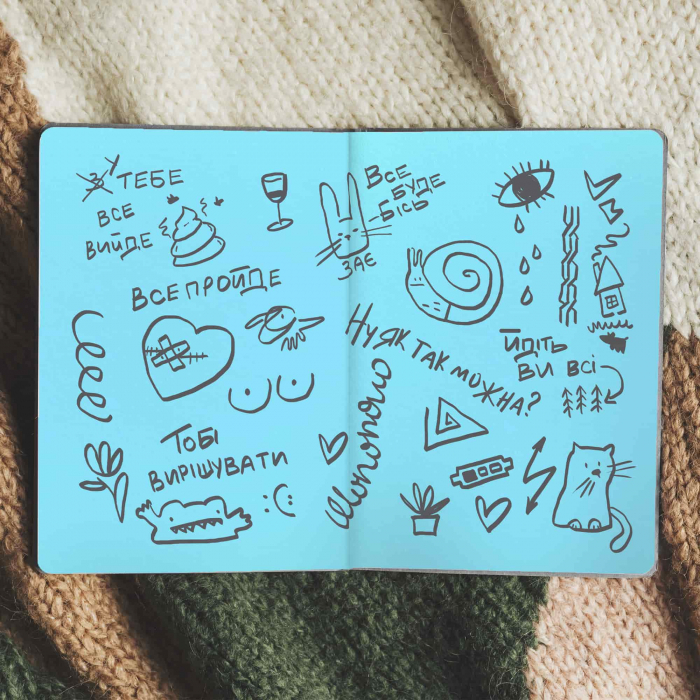 У ТЕБЕ
ВСЕ
ВИЙДЕ
ВСЕ ПРОЙДЕ
ТОБІ
ВИРІШУВАТИ
ВСЕ
БУДЕ
БІСЬ
ЗАЄ
Ну ЯК ТАК МОЖНА?
ЙДІТЬ
ВИ ВСІ